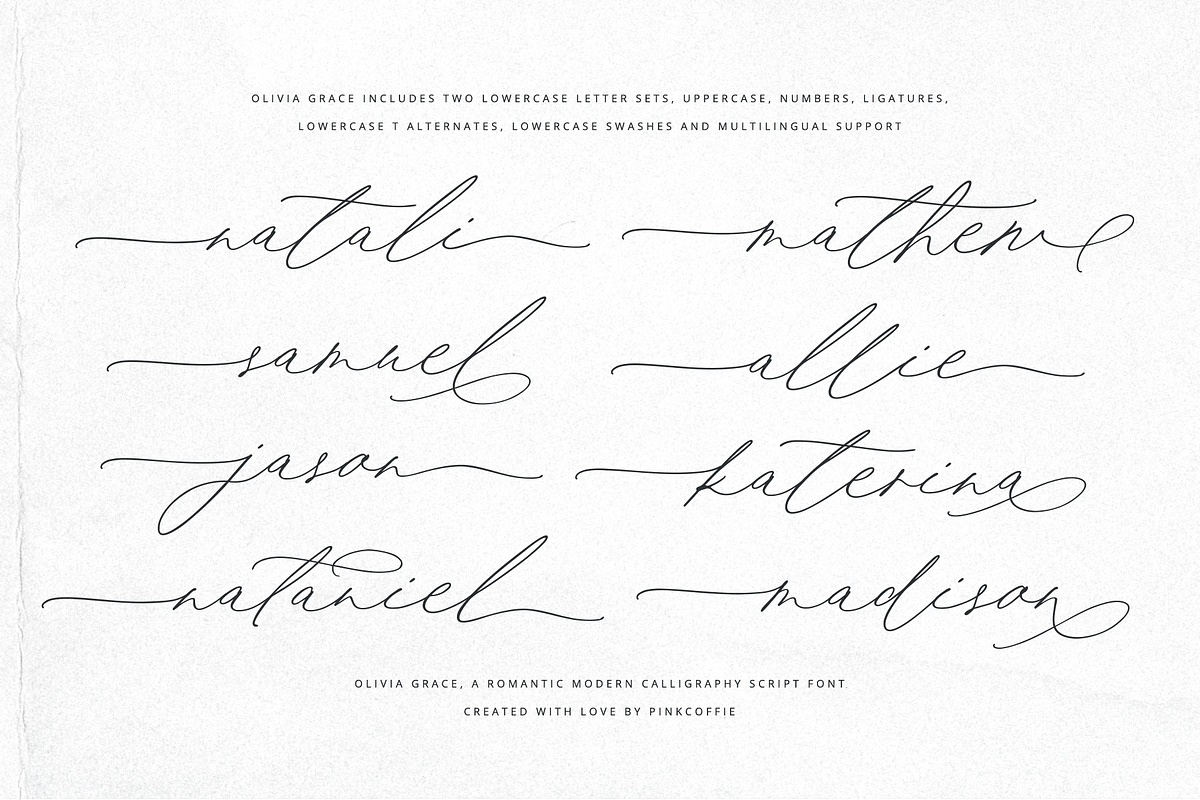 OLIVIA GRACE INCLUDES TWO LOWERCASE LETTER SETS, UPPERCASE, NUMBERS, LIGATURES,
LOWERCASE T ALTERNATES, LOWERCASE SWASHES AND MULTILINGUAL SUPPORT
natali mathew
samuel allie
jason katerina
nataniel madison
OLIVIA GRACE, A ROMANTIC MODERN CALLIGRAPHY SCRIPT FONT.
CREATED WITH LOVE BY PINKCOFFIE